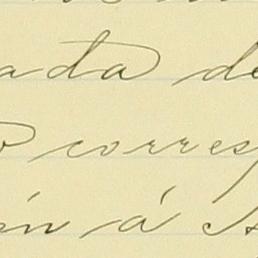 ada de
o corres
ón á